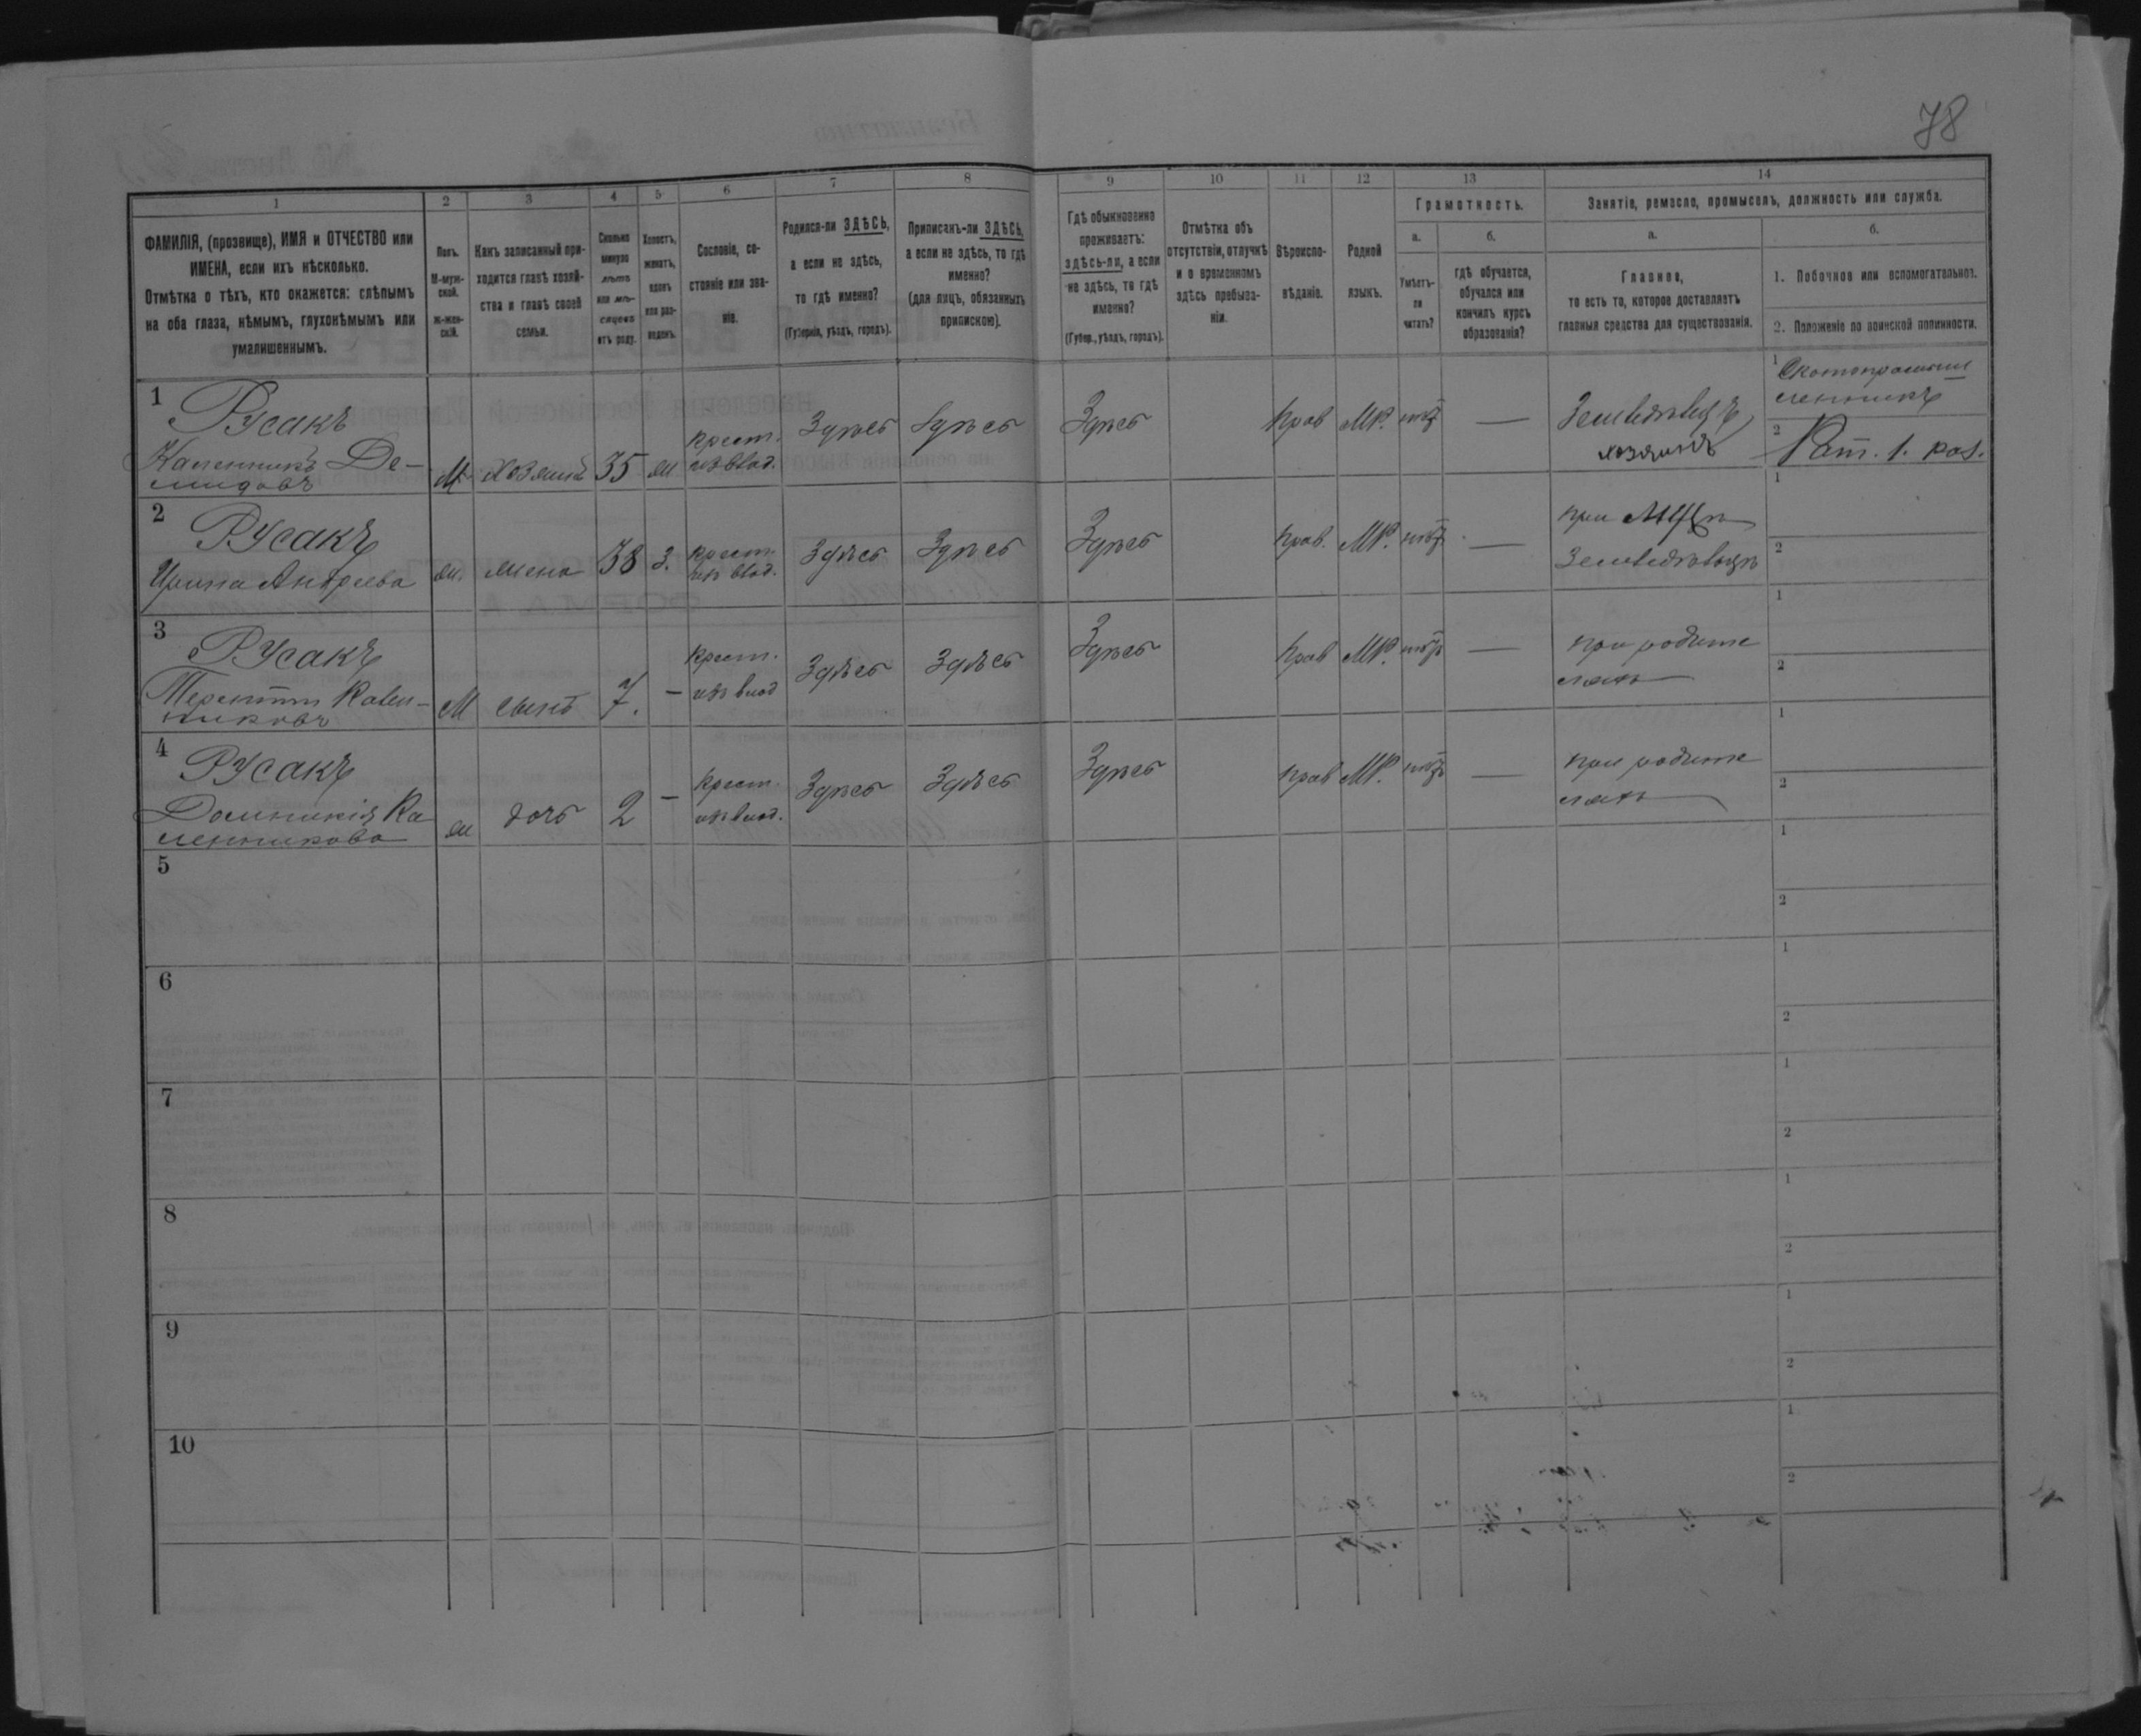 78
1 2 3 4 5 6 7 8 9 10 11 12 13 14
ФАМИЛІЯ, (прозвище), ИМЯ и ОТЧЕСТВО или
ИМЕНА, если ихъ нѣсколько.
Отмѣтка о тѣхъ, кто окажется: слѣпымъ
на оба глаза, нѣмымъ, глухонѣмымъ или
умалишеннымъ.
Полъ.
М-муж-
ской.
Ж-жен-
скій.
Какъ записанный при-
ходится главѣ хозяй-
ства и главѣ своей
семьи.
Сколько
минуло
лѣтъ
или мѣ-
сяцевъ
отъ роду.
Холостъ,
женатъ,
вдовъ
или раз-
веденъ.
Сословіе, со-
стояніе или зва-
ніе.
Родился-ли ЗДѢСЬ,
а если не здѣсь,
то гдѣ именно?
(Губернія, уѣздъ, городъ).
Приписанъ-ли ЗДѢСЬ,
а если не здѣсь, то гдѣ
именно?
(для лицъ, обязанныхъ
припиской).
Гдѣ обыкновенно
проживаетъ:
здѣсь-ли, а если
не здѣсь, то гдѣ
именно?
(Губер., уѣздъ, городъ).
Отмѣтка объ
отсутствіи, отлучкѣ
и о временномъ
здѣсь пребыва-
ніи.
Вѣроиспо-
вѣданіе.
Родной
языкъ.
Грамотность.
а.
Умѣетъ-
ли
читать?
б.
гдѣ обучается,
обучался или
кончилъ курсъ
образованія?
Занятіе, ремесло, промыселъ, должность или служба.
а.
Главное,
то есть то, которое доставляетъ
главныя средства для существованія.
б.
1. Побочное или вспомогательное.
2. Положеніе по воинской повинности.
1
Русакъ
Каленникъ Де-
мидовъ
М
Хозяинъ
35
ж
крест.
изъ влад.
Здѣсь
Здѣсь
Здѣсь
Прав
МР.
нѣт
—
Земледѣлецъ
хозяинъ
1
Скотопромыш
ленникъ
2
Рат. 1. раз.
2
Русакъ
Ирина Андреева
ж.
жена
38
з.
крест.
изъ влад.
Здѣсь
Здѣсь
Здѣсь
Прав.
МР.
нѣт
—
при мужѣ
Земледѣльцѣ
1
2
3
Русакъ
Терентій Кален-
никовъ
М
сынъ
7.
—
крест.
изъ влад
Здѣсь
Здѣсь
Здѣсь
Прав
МР.
нѣт
—
при родите
ляхъ
1
2
4
Русакъ
Домникія Ка
ленникова
ж
дочь
2
—
крест.
изъ влад.
Здѣсь
Здѣсь
Здѣсь
Прав
МР.
нѣт
—
при родите
ляхъ
1
2
5
1
2
6
1
2
7
1
2
8
1
2
9
1
2
10
1
2